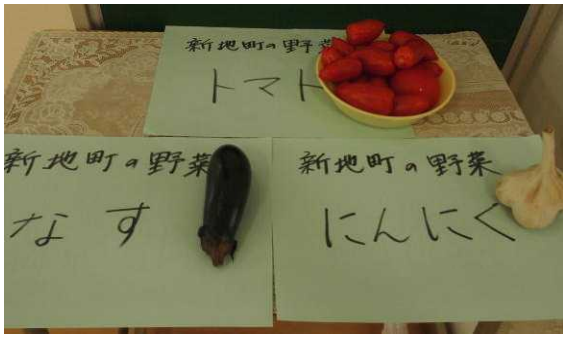 新地町の野菜
トマト
新地町の野菜
なす
新地町の野菜
にんにく